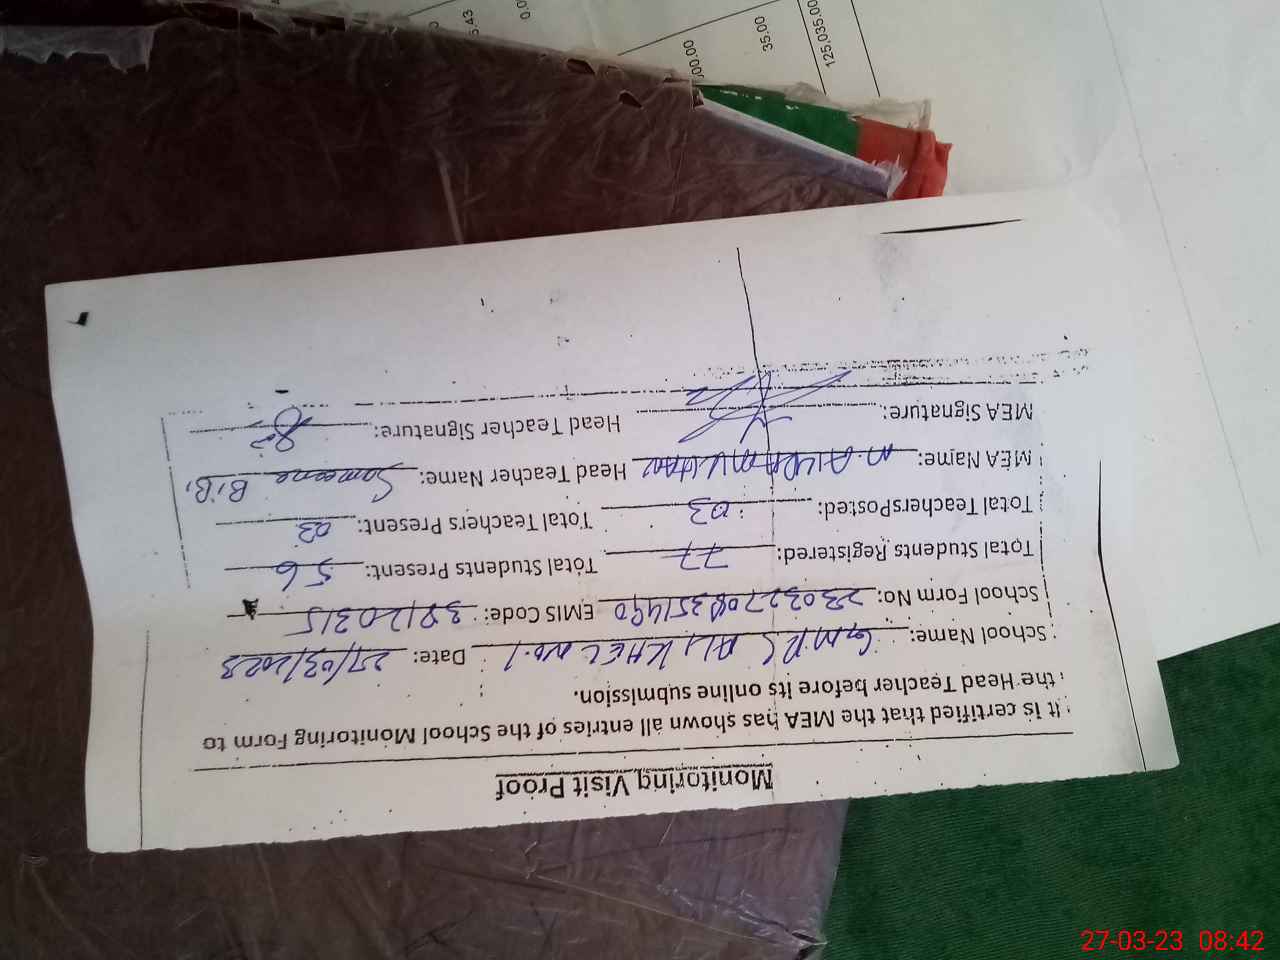 Monitoring Visit Proof
It is certified that the MEA has shown all entries of the School Monitoring Form to
the Head Teacher before its online submission.
School Name: GMPS ALI KHEL No.1 Date: 27/03/2023
School Form No: EMIS Code: 38120315
Total Students Registered: 77 Total Students Present: 56
Total TeachersPosted: 03 Total Teachers Present: 03
MEA Name: Head Teacher Name: BiBi
MEA Signature: Head Teacher Signature:
35.00
125,035.00
27-03-23 08:42